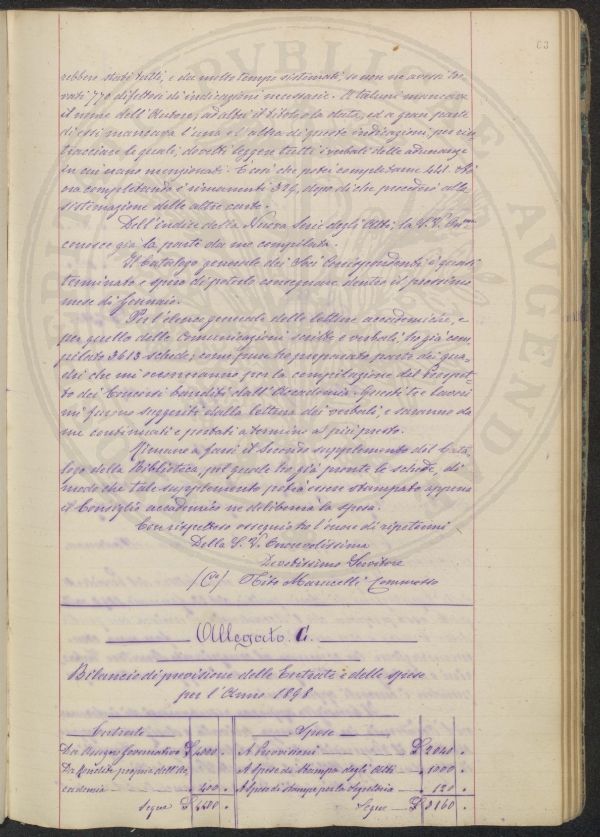 63
rebbero stati tutti, e da molto tempo sistemati, se non ne avessi tro-
vati 770 difettosi di indicazioni necessarie. A taluni mancava
il nome dell'Autore, ad altri il titolo o la data, ed a gran parte
di essi mancava l'una e l'altra di queste indicazioni, per rin-
tracciare le quali, dovetti leggere tutti i verbali delle adunanze
in cui erano menzionati. È così che potei completarne 441. Ed
ora completando i rimanenti 329, dopo di che procederò alla
sistemazione delle altre carte.
Dell'indice della Nuova Serie degli Atti, la S. V. On.ma
conosce già la parte da me compilata.
Il Catalogo generale dei Soci Corrispondenti è quasi
terminato e spero di poterlo consegnare dentro il prossimo
mese di Gennaio.
Per l'elenco generale delle letture accademiche, e
per quello delle comunicazioni scritte e verbali, ho già com-
pilato 3613 schede; come pure ho preparato parte dei qua-
dri che mi occorreranno per la compilazione del Prospet-
to dei Concorsi banditi dall'Accademia. Questi lavori
mi furono suggeriti dalla lettura dei verbali, e saranno da
me continuati e portati a termine al più presto.
Rimane a farsi il Secondo supplemento del Cata-
logo della Biblioteca, pel quale ho già pronte le schede, di
modo che tale supplemento potrà essere stampato appena
il Consiglio accademico ne delibererà la spesa.
Con rispettoso ossequio ho l'onore di ripetermi
Della S. V. Onorevolissima
Devotissimo Servitore
Tito Marucelli Commesso
Allegato C.
Bilancio di previsione delle Entrate e delle spese
per l'Anno 1898
Entrate Spese
Da Assegno Governativo £ 4000 . A Provvisioni £ 2040 .
Da Rendita propria dell'Ac- A Spese di Stampa degli Atti " 1000 .
cademia " 400 . A Spese di Stampe per la Segreteria " 120 .
Segue £ 4400 . Segue £ 3160 .
PVBLICAE AVGENDAE